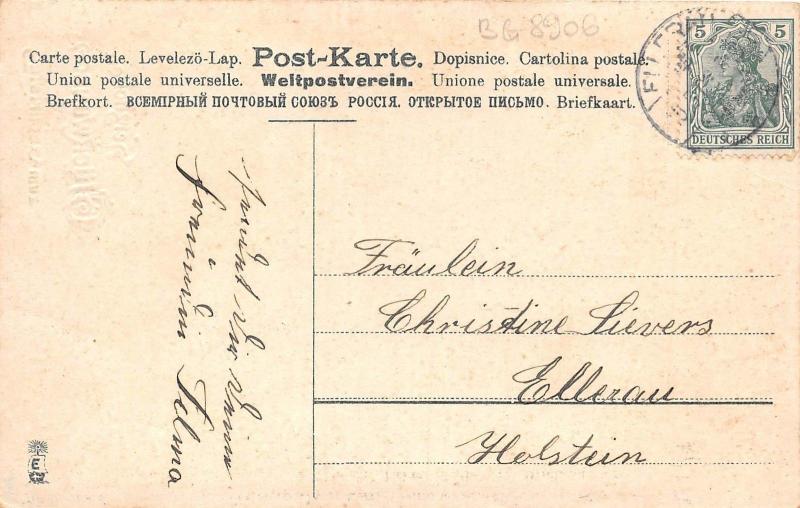 BG 8906
Carte postale. Levelezö-Lap. Post-Karte. Dopisnice. Cartolina postale.
Union postale universelle. Weltpostverein. Unione postale universale.
Brefkort. ВСЕМІРНЫЙ ПОЧТОВЫЙ СОЮЗЪ РОССІЯ. ОТКРЫТОЕ ПИСЬМО. Briefkaart.
5 5
DEUTSCHES REICH
sendet Dir Deine
Freundin Selma
Fräulein
Christine Sievers
Ellerau
Holstein
E